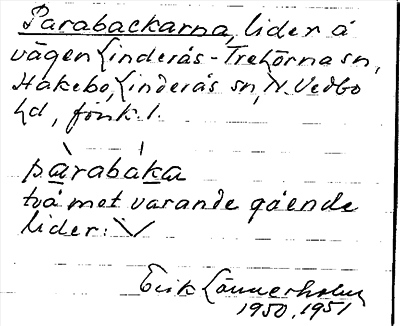 Parabackarna, lider å
vägen Linderås - Trehörna sn,
Hakebo, Linderås sn, N. Vedbo
hd, Jönk. l.
pàrabáka
två mot varandе gående
lider: \/
Erik Lönnerholm
1950, 1951